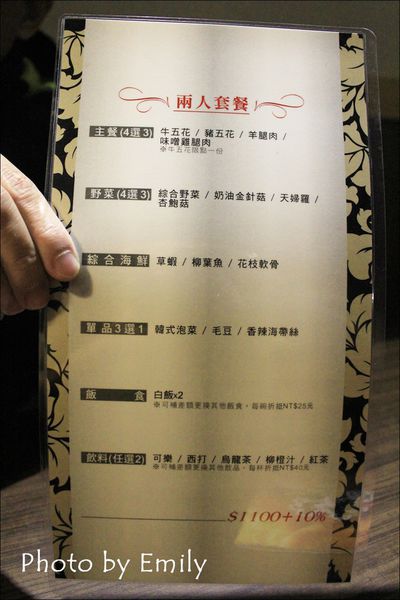 兩人套餐
主餐(4選3) 牛五花 / 豬五花 / 羊腿肉 /
味噌雞腿肉
※牛五花限點一份
野菜(4選3) 綜合野菜 / 奶油金針菇 / 天婦羅 /
杏鮑菇
綜合海鮮 草蝦 / 柳葉魚 / 花枝軟骨
單品3選1 韓式泡菜 / 毛豆 / 香辣海帶絲
飯食 白飯x2
※可補差額更換其他飯食，每碗折抵NT$25元
飲料(任選2) 可樂 / 西打 / 烏龍茶 / 柳橙汁 / 紅茶
※可補差額更換其他飲品，每杯折抵NT$40元
$1100+10%
Photo by Emily